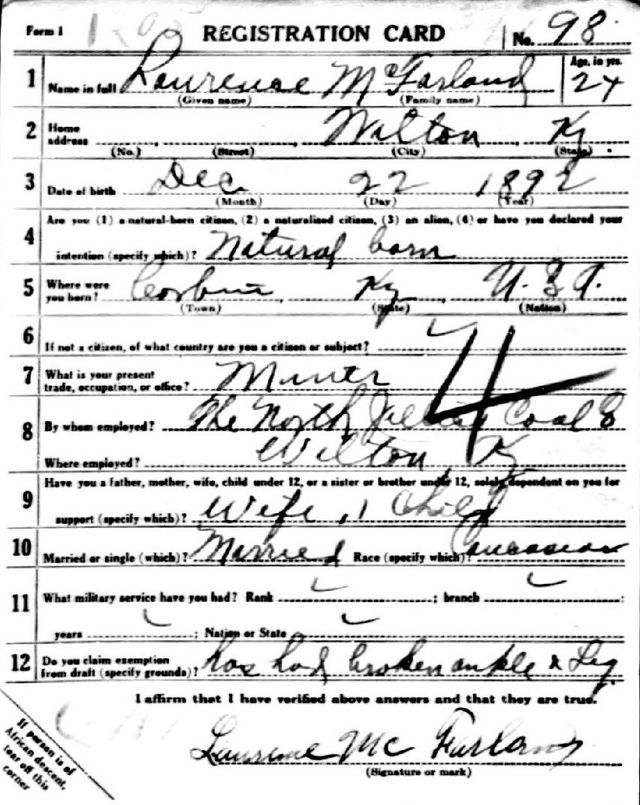 Form 1 REGISTRATION CARD No. 98
1 Name in full Laurence McFarland Age, in yrs. 24
(Given name) (Family name)
2 Home address Wilton Ky.
(No.) (Street) (City) (State)
3 Date of birth Dec 22 1892
(Month) (Day) (Year)
4 Are you (1) a natural-born citizen, (2) a naturalized citizen, (3) an alien, (4) or have you declared your
intention (specify which)? Natural born
5 Where were you born? Corbin, Ky U. S. A.
(Town) (State) (Nation)
6 If not a citizen, of what country are you a citizen or subject?
7 What is your present trade, occupation, or office? Miner 4
8 By whom employed? The North Jellico Coal
Where employed? Wilton Ky
9 Have you a father, mother, wife, child under 12, or a sister or brother under 12, solely dependent on you for
support (specify which)? Wife, 1 Child
10 Married or single (which)? Married Race (specify which)? Caucasian
11 What military service have you had? Rank ; branch ;
years ; Nation or State
12 Do you claim exemption from draft (specify grounds)? has had broken ankle & Leg
I affirm that I have verified above answers and that they are true.
If person is of
African descent,
tear off this
corner
Laurence Mc Farland
(Signature or mark)